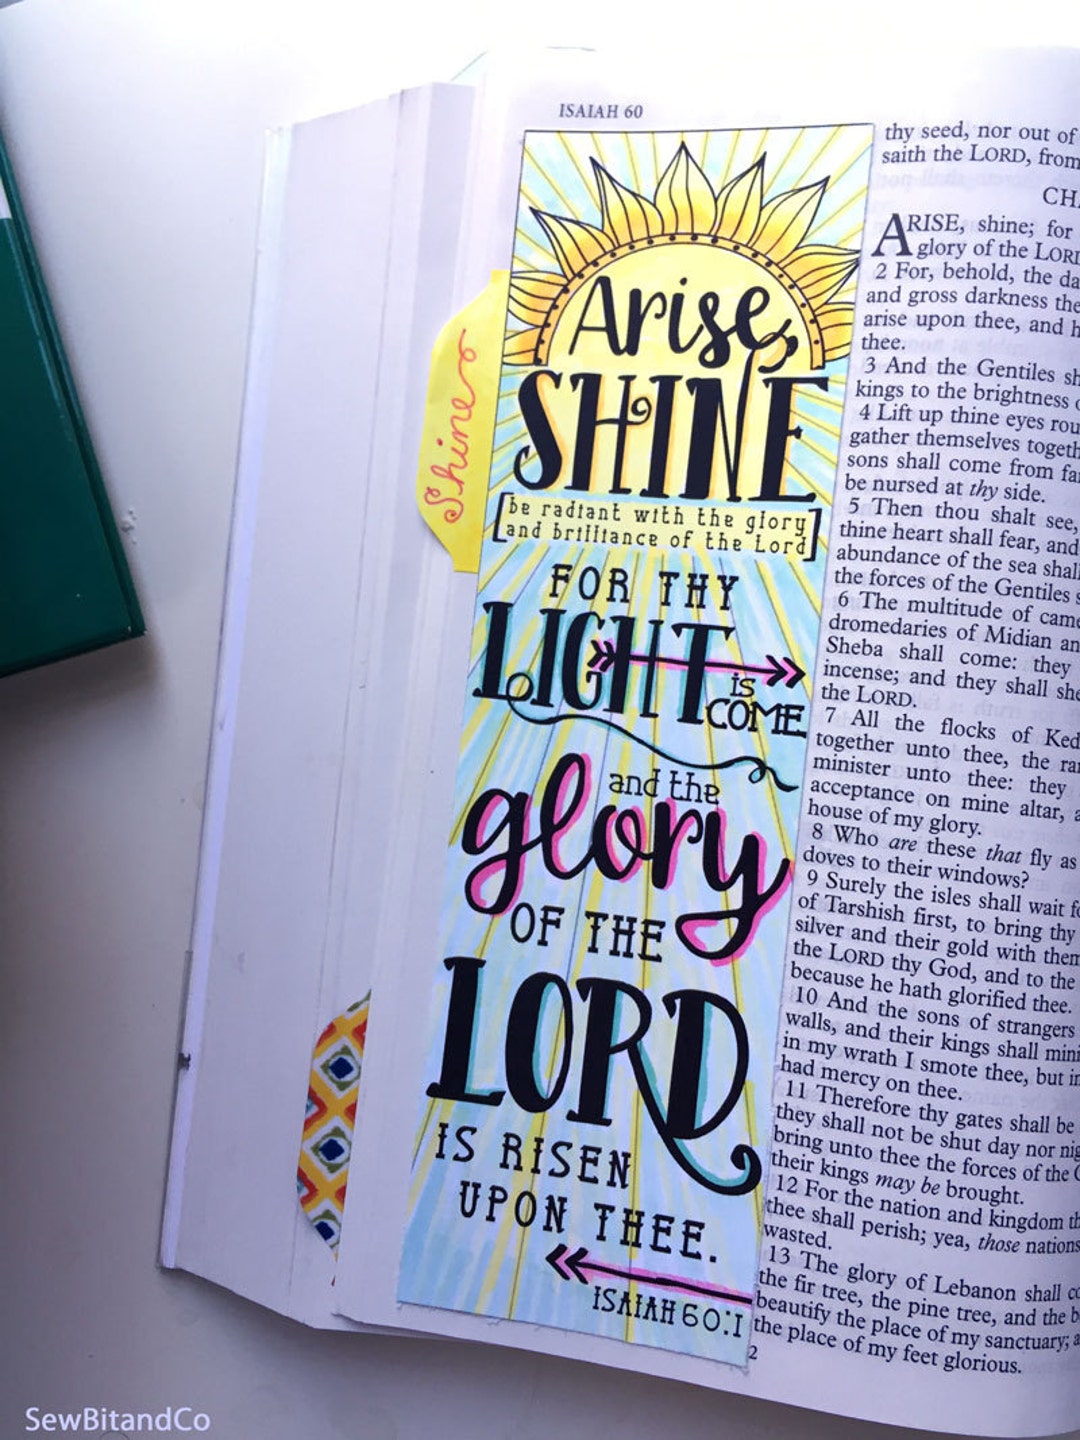 ISAIAH 60
Arise,
SHINE
[be radiant with the glory
and brilliance of the Lord]
FOR THY
LIGHT
IS
COME
and the
glory
OF THE
LORD
IS RISEN
UPON THEE.
ISAIAH 60:1
Shine
thy seed, nor out of
saith the LORD, from
ARISE, shine; for
glory of the LORD
2 For, behold, the
and gross darkness the
arise upon thee, and
thee.
3 And the Gentiles
kings to the brightness
4 Lift up thine eyes
gather themselves
sons shall come from
be nursed at thy side.
5 Then thou shalt see,
thine heart shall fear, and
abundance of the sea
the forces of the Gentiles
6 The multitude of
dromedaries of Midian
Sheba shall come: they
incense; and they shall
the LORD.
7 All the flocks of
together unto thee, the
minister unto thee: they
acceptance on mine altar,
house of my glory.
8 Who are these that fly as
doves to their windows?
9 Surely the isles shall wait
of Tarshish first, to bring thy
silver and their gold with them
the LORD thy God, and to the
because he hath glorified thee.
10 And the sons of strangers
walls, and their kings shall
in my wrath I smote thee, but
had mercy on thee.
11 Therefore thy gates shall be
they shall not be shut day nor
bring unto thee the forces of the
their kings may be brought.
12 For the nation and kingdom
thee shall perish; yea, those nations
wasted.
13 The glory of Lebanon shall
the fir tree, the pine tree, and the
beautify the place of my sanctuary;
the place of my feet glorious.
2
SewBitandCo